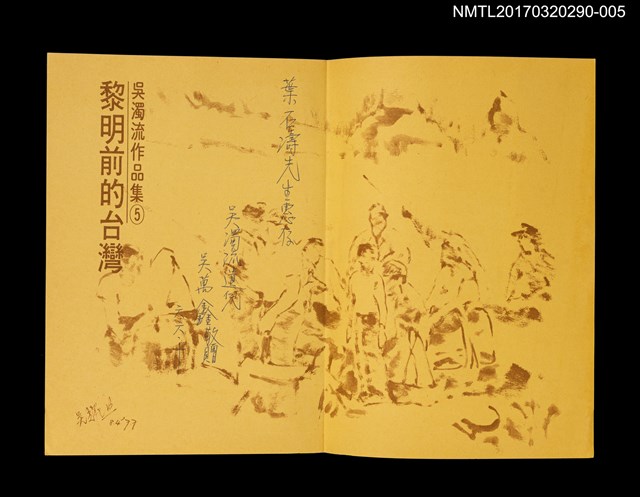 NMTL20170320290-005
吳濁流作品集⑤
黎明前的台灣
葉石濤先生惠存
吳濁流遺作
吳萬鑫敬贈